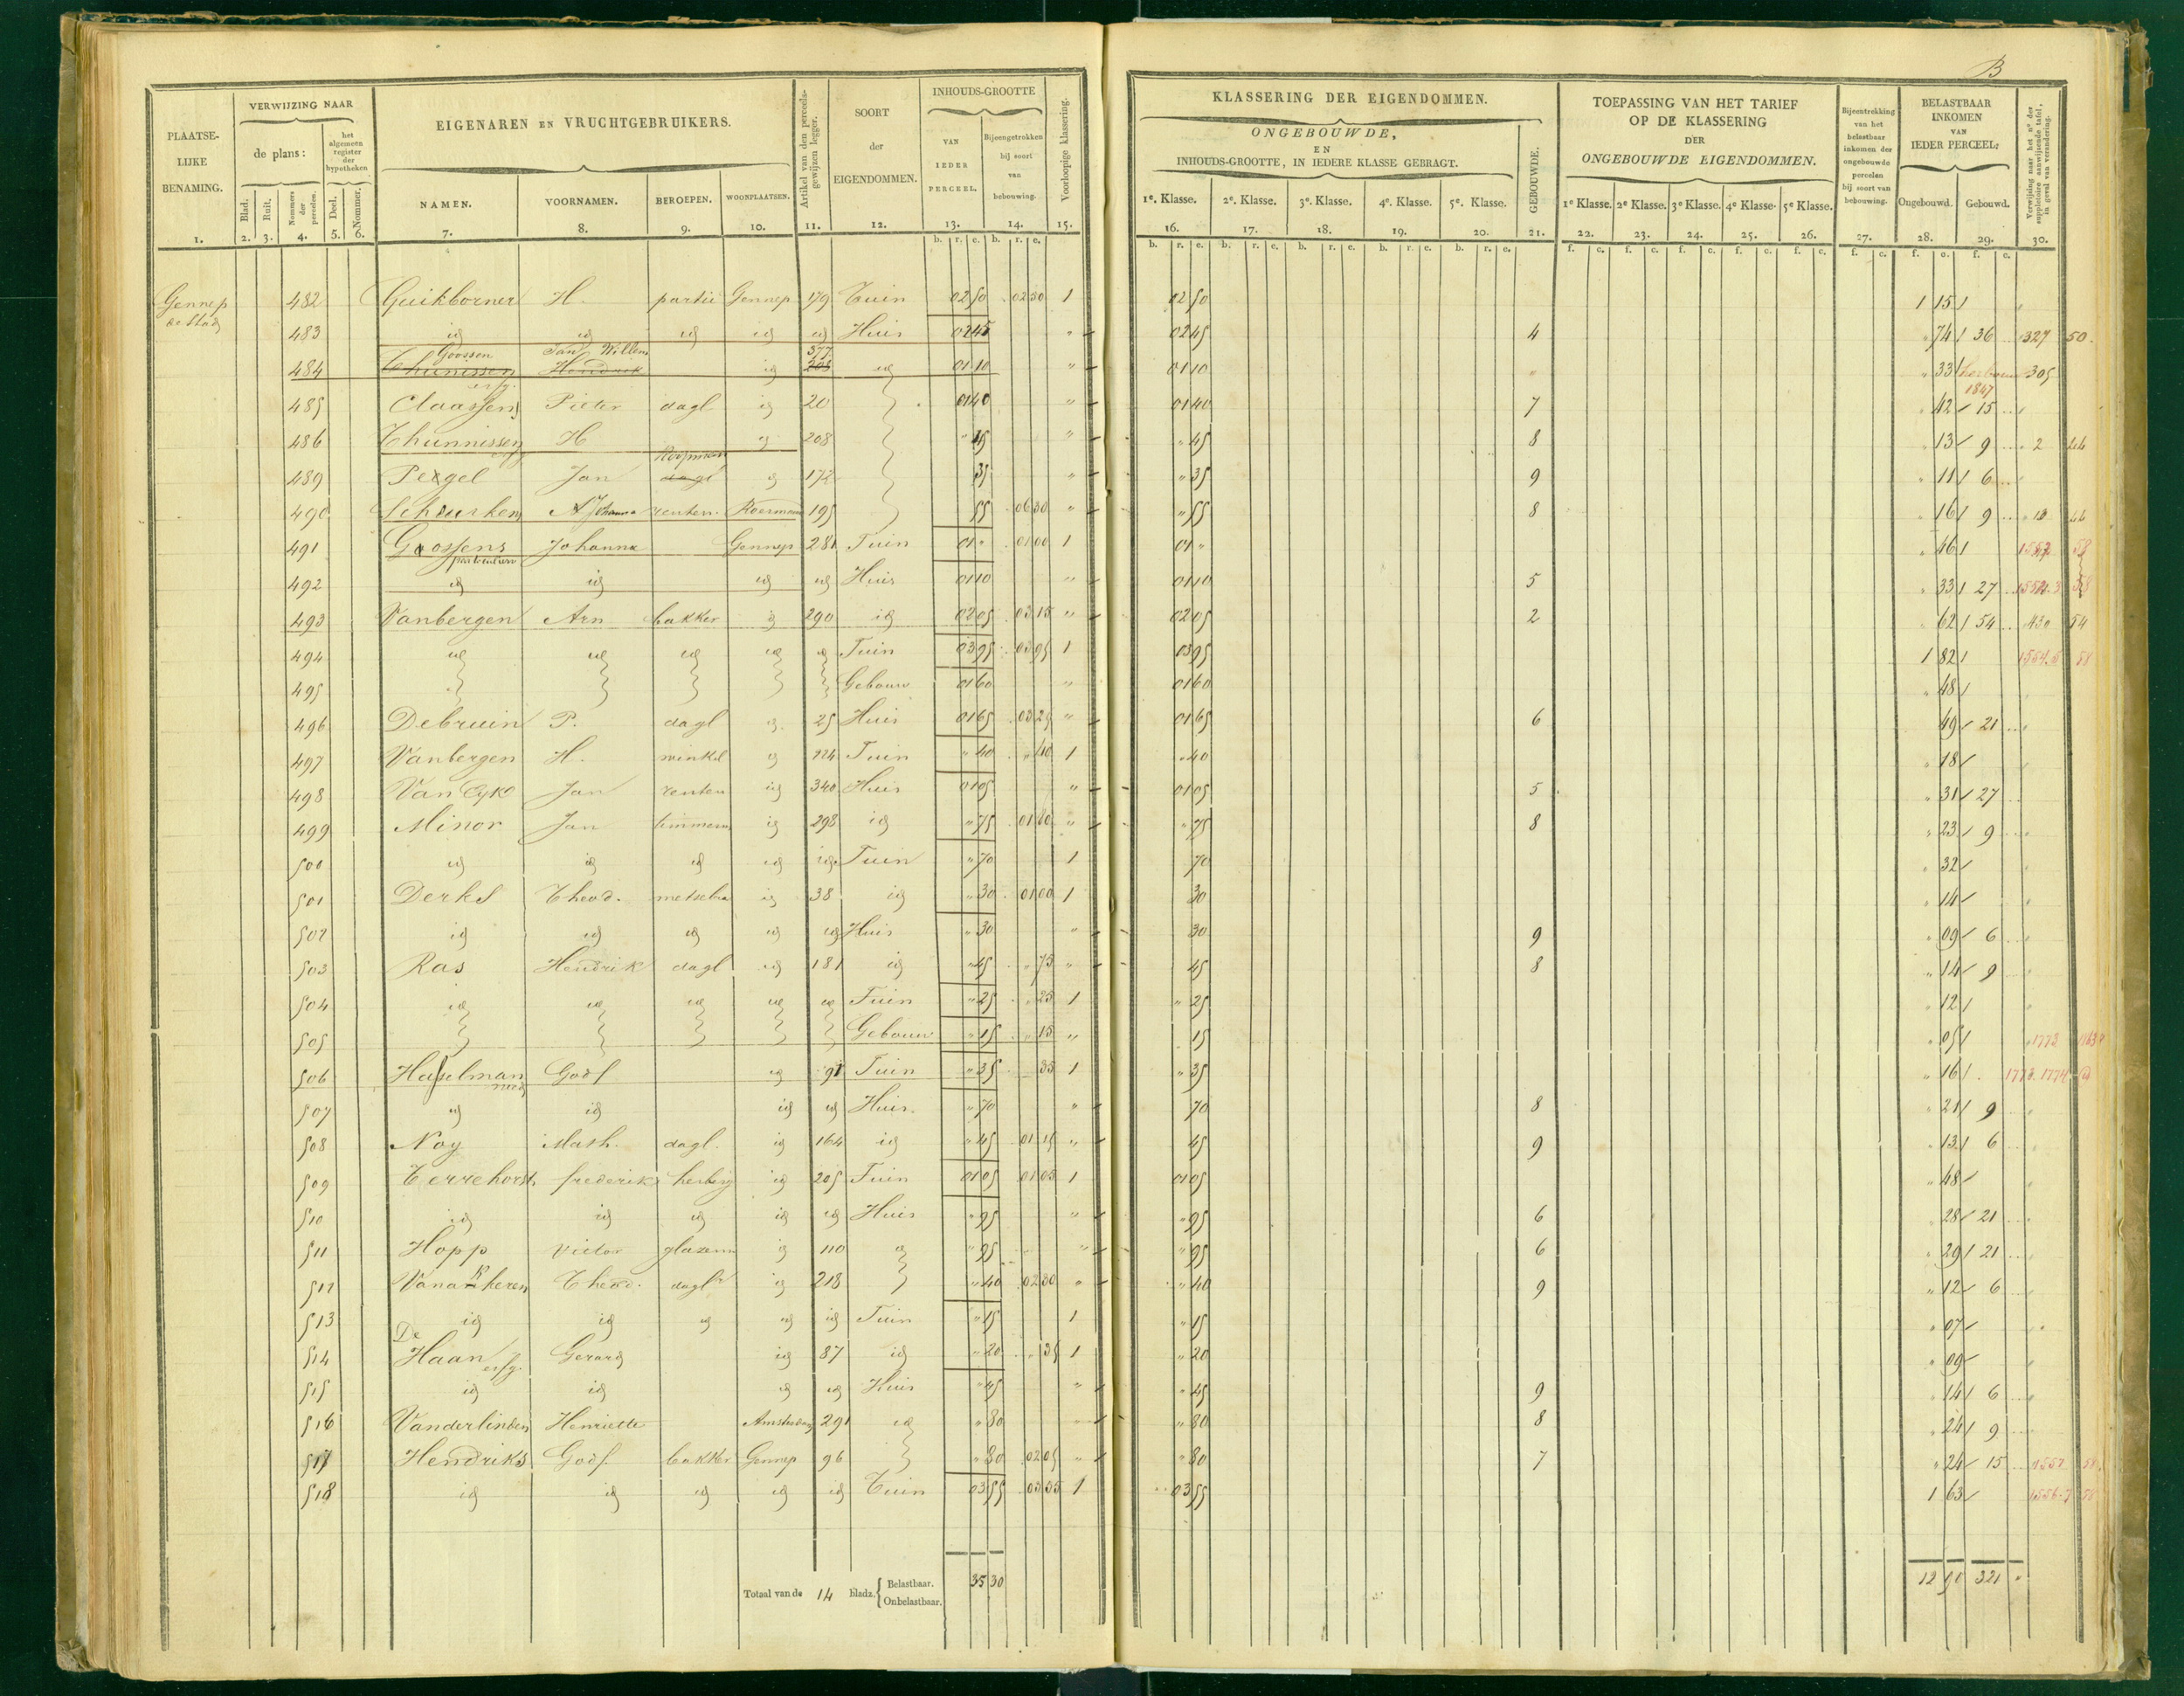 B
PLAATSE-LIJKE BENAMING. 1.
VERWIJZING NAAR
de plans:
Blad. 2. Ruit. 3. Nommers der perceelen. 4.
het algemeen register der hypotheken
Deel. 5. Nommer. 6.
EIGENAREN EN VRUCHTGEBRUIKERS.
NAMEN. 7. VOORNAMEN. 8. BEROEPEN. 9. WOONPLAATSEN. 10.
Artikel van den perceels-gewijzen legger. 11.
SOORT der EIGENDOMMEN. 12.
INHOUDS-GROOTTE
VAN IEDER PERCEEL. 13.
Bijeengetrokken bij soort van bebouwing. 14.
Voorloopige klassering. 15.
KLASSERING DER EIGENDOMMEN.
ONGEBOUWDE,
EN
INHOUDS-GROOTTE, IN IEDERE KLASSE GEBRAGT.
1e. Klasse. 16. 2e. Klasse. 17. 3e. Klasse. 18. 4e. Klasse. 19. 5e. Klasse. 20.
GEBOUWDE. 21.
TOEPASSING VAN HET TARIEF
OP DE KLASSERING
DER
ONGEBOUWDE EIGENDOMMEN.
1e Klasse. 22. 2e Klasse. 23. 3e Klasse. 24. 4e Klasse. 25. 5e Klasse. 26.
Bijeentrekking van het belastbaar inkomen der ongebouwde perceelen bij soort van bebouwing. 27.
BELASTBAAR INKOMEN VAN IEDER PERCEEL:
Ongebouwd. 28. Gebouwd. 29.
Verwijzing naar het no der suppletoire aanwijzende tafel, in geval van verandering. 30.
Gennep 482 Guikborner H. partic Gennep 179 Tuin 02 50 02 50 1 02 50 1 15
de Stad
483 id id id id id Huis 02 45 " 02 45 4 " 74 36 327 50
Goossen Jan Willem 377
484 Thunissen Hendrik id id 01 10 " 01 10 " 33 305
1847
485 Claassens Pieter dagl id 20 01 40 " 01 40 7 " 42 15
486 Thunnissen H id 208 " 45 " " 45 8 " 13 9 2
Koopman
489 Pexgel Jan dagl id 172 35 " " 35 9 " 11 6
490 Scheurkens A Johanna renten. Roermond 195 55 06 30 " " 55 8 " 16 9
491 Goossens Johanna Gennep 281 Tuin 01 " 01 00 1 01 " " 46 58
492 id id id id Huis 01 10 " 01 10 5 " 33 27 58
493 Vanbergen Arn bakker id 290 id 02 05 03 15 " 02 05 2 " 62 54 430 54
494 id id id id id Tuin 03 95 03 95 1 03 95 1 82 1554.5 58
495 Gebouw 01 60 " 01 60 " 48
496 Debruin P. dagl id 25 Huis 01 65 03 25 " 01 65 6 49 21
497 Vanbergen H. winkel id 224 Tuin " 40 " 40 1 " 40 " 18
498 Van Dyk Jan renten id 340 Huis 01 05 " 01 05 5 " 31 27
499 Minor Jan timmerm id 298 id " 75 01 80 " " 75 8 " 23 9
500 id id id id id Tuin " 70 1 70 " 32
501 Derks Theod. metselaa id 38 id " 30 01 00 1 30 " 14
502 id id id id id Huis " 30 " 30 9 " 09 6
503 Ras Hendrik dagl id 181 id " 45 " 75 " 45 8 " 14 9
504 id id id id id Tuin " 25 " 25 1 " 25 " 12
505 Gebouw " 15 " 15 " 15 " 05 1773
506 Haselman Godf id 91 Tuin " 35 35 1 " 35 " 16 1773.1774
507 id id id id Huis " 70 " 70 8 " 21 9
508 Noy Math. dagl. id 164 id " 45 01 15 " 45 9 " 13 6
509 Terrehorst frederik herberg id 205 Tuin 01 05 01 05 1 01 05 " 48
510 id id id id id Huis " 95 " " 95 6 " 28 21
511 Hopp Victor glazenm id 110 id " 95 " " 95 6 " 29 21
512 Vanakkeren Theod. dagl id 218 " 40 02 30 " " 40 9 " 12 6
513 id id id id id Tuin " 15 1 " 15 " 07
De
514 Haan erfg. Gerard id 87 id " 20 " 35 1 " 20 " 09
515 id id id id Huis " 45 " " 45 9 " 14 6
516 Vanderlinden Henriette Amsterdam 291 id " 80 " " 80 8 " 24 9
517 Hendriks Godf. bakker Gennep 96 " 80 02 05 " " 80 7 " 24 15 1557 58
518 id id id id id Tuin 03 55 03 55 1 03 55 1 63 1556.7 58
Totaal van de 14 bladz. Belastbaar. 35 30
Onbelastbaar.
12 50 321 "